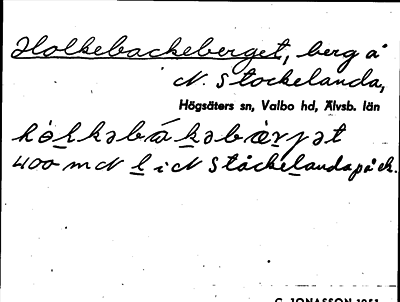 Holkebackeberget, berg å
N. Stockelanda,
Högsäters sn, Valbo hd, Älvsb. län
400 m N l i N Ståckelanda på ek.
C. JONASSON 1951